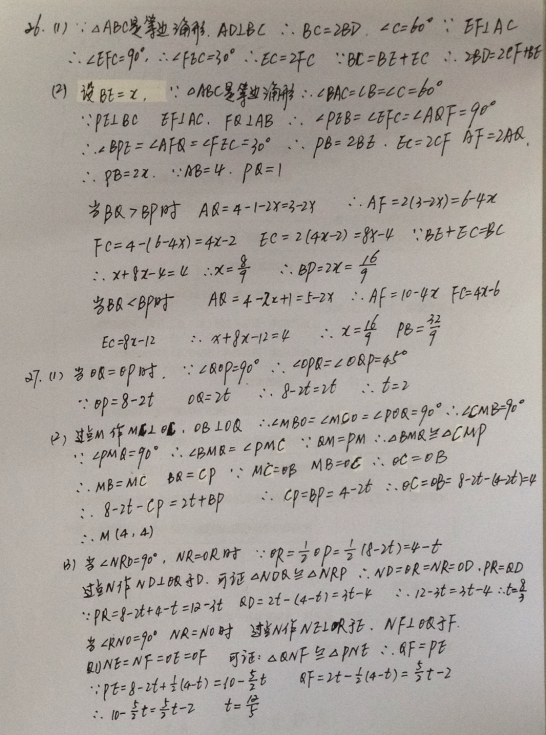 26. (1) ∵△ABC是等边三角形, AD⊥BC ∴BC=2BD. ∠C=60° ∵EF⊥AC
∴∠EFC=90°, ∴∠FEC=30° ∴EC=2FC ∵BC=BE+EC ∴2BD=2CF+BE
(2) 设BE=x. ∵△ABC是等边三角形 ∴∠BAC=∠B=∠C=60°
∵PE⊥BC EF⊥AC, FQ⊥AB ∴∠PEB=∠EFC=∠AQF=90°
∴∠BPE=∠AFQ=∠FEC=30° ∴PB=2BE. EC=2CF AF=2AQ.
∴PB=2x. ∵AB=4. PQ=1
当BQ>BP时 AQ=4-1-2x=3-2x ∴AF=2(3-2x)=6-4x
FC=4-(6-4x)=4x-2 EC=2(4x-2)=8x-4 ∵BE+EC=BC
∴x+8x-4=4 ∴x=8/9 ∴BP=2x=16/9
当BQ<BP时 AQ=4-2x+1=5-2x ∴AF=10-4x FC=4x-6
EC=8x-12 ∴x+8x-12=4 ∴x=16/9 PB=32/9
27. (1) 当OQ=OP时. ∵∠QOP=90° ∴∠OPQ=∠OQP=45°
∵OP=8-2t OQ=2t ∴8-2t=2t ∴t=2
(2) 过点M作MC⊥OC, OB⊥OQ ∴∠MBO=∠MCO=∠POQ=90° ∴∠CMB=90°
∵∠PMQ=90° ∴∠BMQ=∠PMC ∵QM=PM ∴△BMQ≌△CMP
∴MB=MC BQ=CP ∵MC=OB MB=OC ∴OC=OB
∴8-2t-CP=2t+BP ∴CP=BP=4-2t ∴OC=OB=8-2t-(4-2t)=4
∴M(4,4)
(3) 当∠NRO=90°, NR=OR时 ∵OR=1/2OP=1/2(8-2t)=4-t
过点N作ND⊥OQ于D. 可证△NDQ≌△NRP ∴ND=OR=NR=OD, PR=QD
∵PR=8-2t+4-t=12-3t QD=2t-(4-t)=3t-4 ∴12-3t=3t-4 ∴t=8/3
当∠RNO=90° NR=NO时 过点N作NE⊥OR于E, NF⊥OQ于F.
则NE=NF=OE=OF 可证:△QNF≌△PNE ∴QF=PE
∵PE=8-2t+1/2(4-t)=10-5/2t QF=2t-1/2(4-t)=5/2t-2
∴10-5/2t=5/2t-2 t=12/5